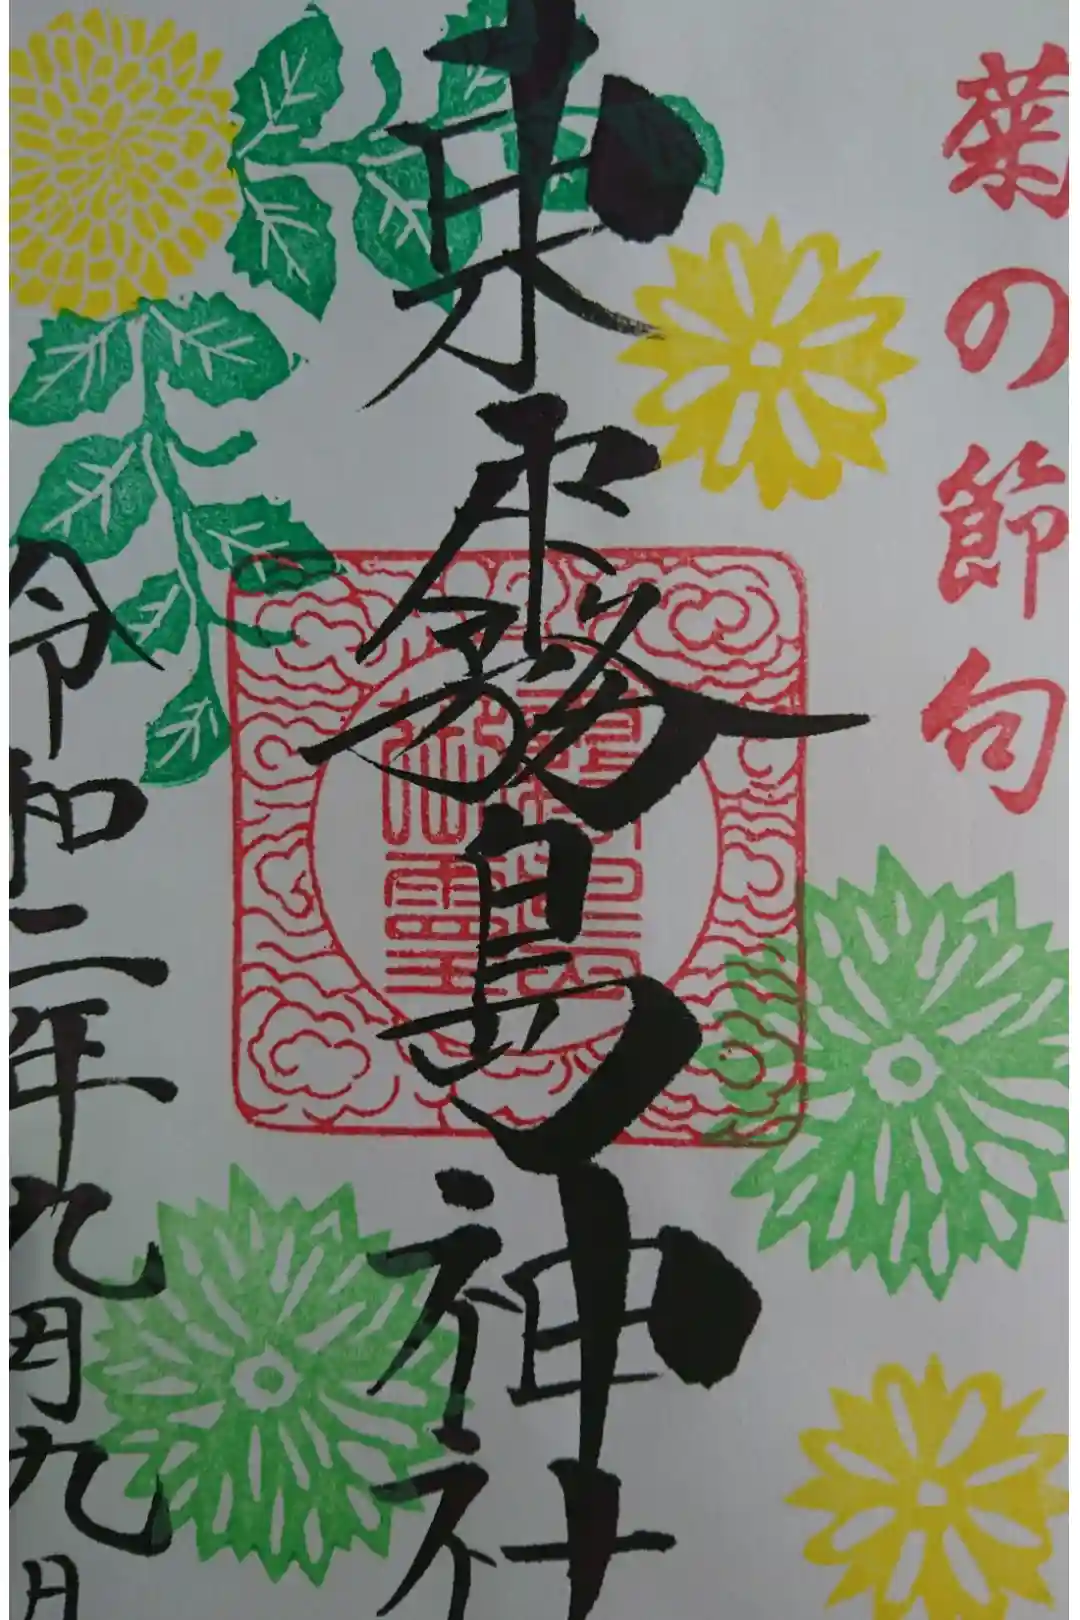 菊の節句
東霧島神社
令和二年九月九日